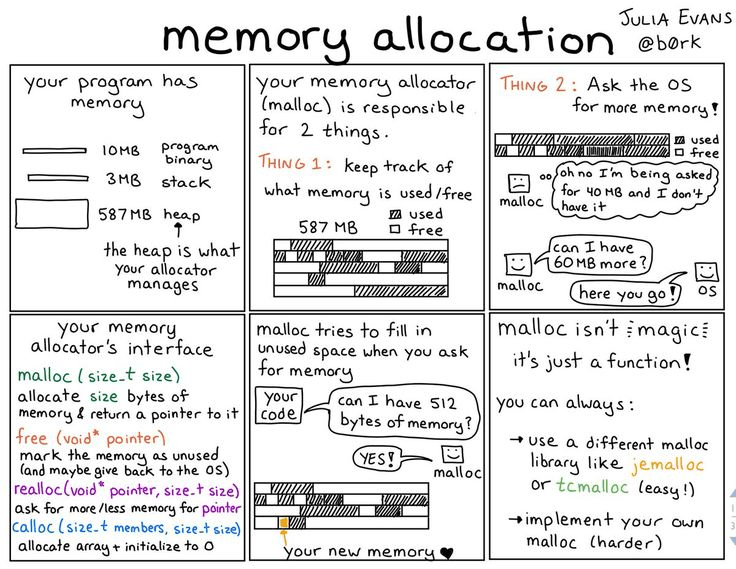 memory allocation
JULIA EVANS
@b0rk
your program has
memory
10MB program
binary
3MB stack
587MB heap
the heap is what
your allocator
manages
your memory allocator
(malloc) is responsible
for 2 things.
THING 1: keep track of
what memory is used/free
587 MB
used
free
THING 2: Ask the OS
for more memory!
used
free
oh no I'm being asked
for 40MB and I don't
have it
malloc
can I have
60MB more?
malloc
here you go!
OS
your memory
allocator's interface
malloc (size_t size)
allocate size bytes of
memory & return a pointer to it
free (void* pointer)
mark the memory as unused
(and maybe give back to the OS)
realloc(void* pointer, size_t size)
ask for more/less memory for pointer
calloc (size_t members, size_t size)
allocate array + initialize to 0
malloc tries to fill in
unused space when you ask
for memory
your
code
can I have 512
bytes of memory?
YES!
malloc
your new memory ♥
malloc isn't magic
it's just a function!
you can always:
→ use a different malloc
library like jemalloc
or tcmalloc (easy!)
→ implement your own
malloc (harder)